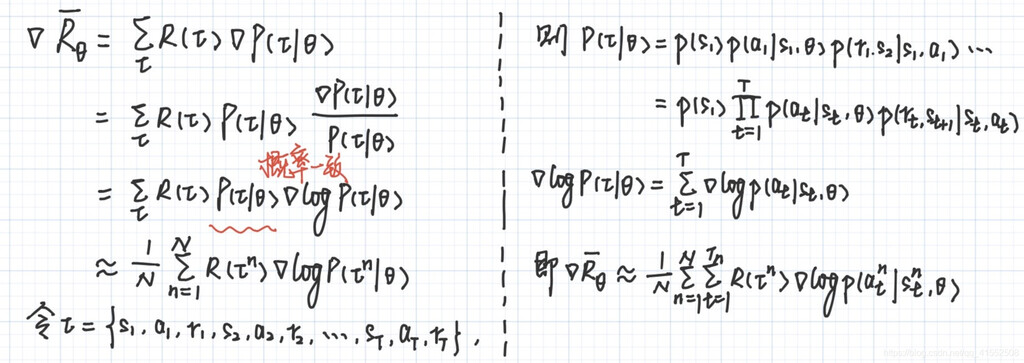 ∇R̄_θ = Σ_τ R(τ)∇P(τ|θ)
= Σ_τ R(τ)P(τ|θ) ∇P(τ|θ)/P(τ|θ)
概率一致
= Σ_τ R(τ)P(τ|θ)∇logP(τ|θ)
≈ 1/N Σ_{n=1}^{N} R(τⁿ)∇logP(τⁿ|θ)
令 τ = {s₁, a₁, r₁, s₂, a₂, r₂, ⋯, s_T, a_T, r_T},
则 P(τ|θ) = p(s₁)p(a₁|s₁,θ)p(r₁,s₂|s₁,a₁)⋯
= p(s₁) ∏_{t=1}^{T} p(a_t|s_t,θ)p(r_t,s_{t+1}|s_t,a_t)
∇logP(τ|θ) = Σ_{t=1}^{T} ∇logp(a_t|s_t,θ)
即 ∇R̄_θ ≈ 1/N Σ_{n=1}^{N} Σ_{t=1}^{T_n} R(τⁿ)∇logp(a_tⁿ|s_tⁿ,θ)